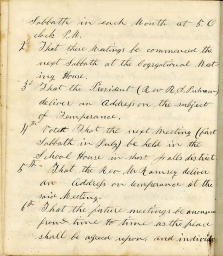 Sabbath in each Month at 5 O
clock P.M.
2 That these Meetings be commenced the
next Sabbath at the Congregational Meet-
ing House.
3d That the President (Rev R. S.
deliver an Address on the subject
of Temperance.
4th Voted That the next Meeting (last
Sabbath in July) be held in the
School House in Falls district
5th That the Rev Mr Ramsey deliver
an Address on temperance at the
said Meeting.
6th That the future meetings be
from time to time as the place
shall be agreed upon, and